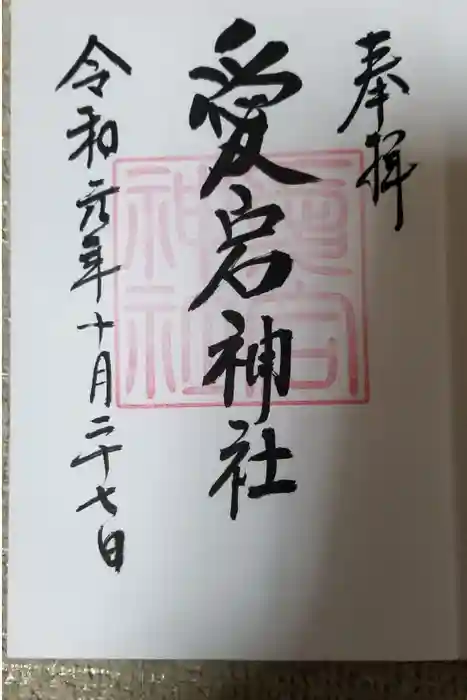 奉拝
愛宕神社
令和元年十月二十七日
愛宕
神社